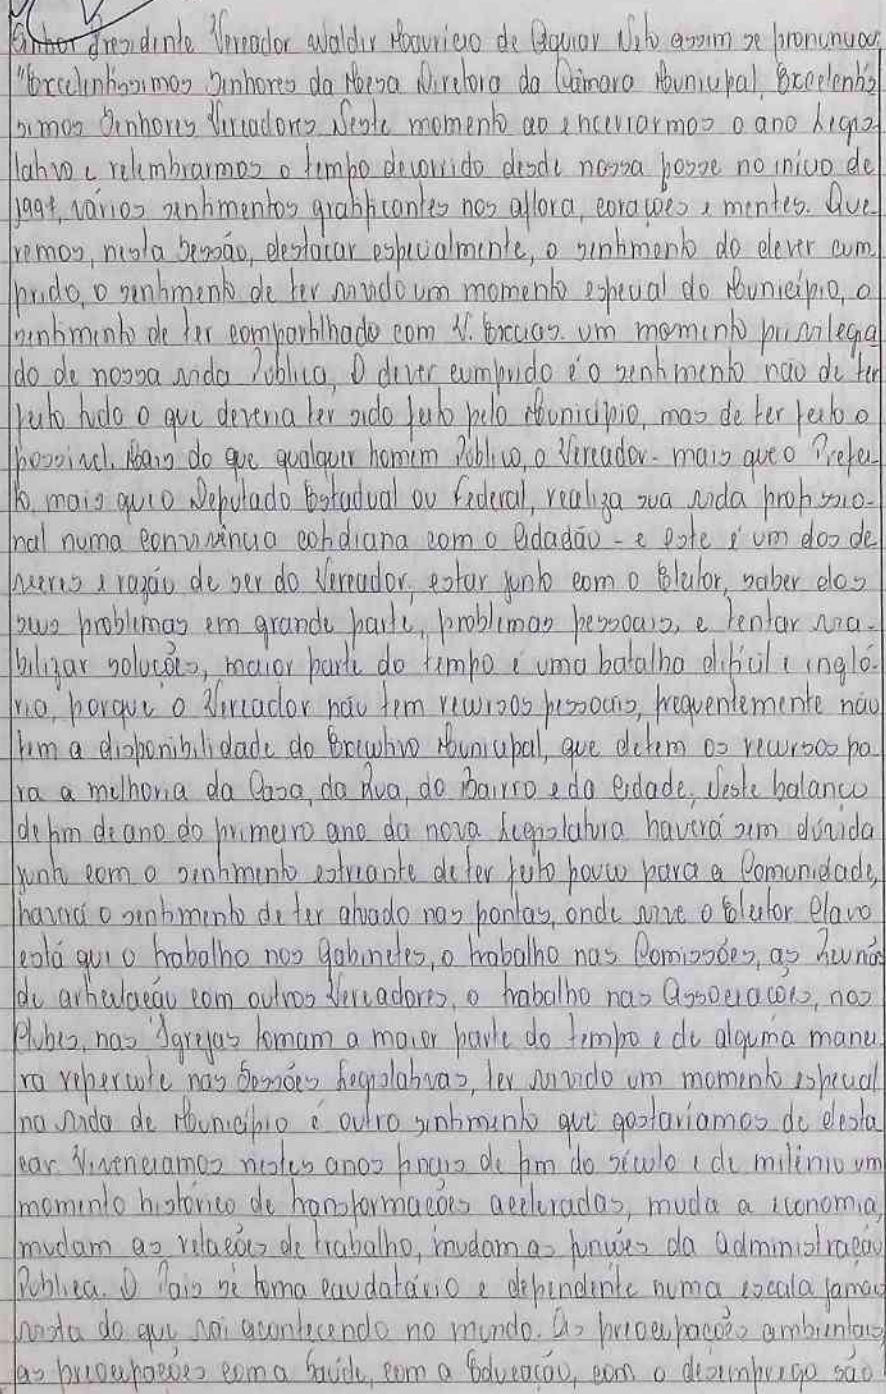 Senhor Presidente Vereador Waldir Mauricio de Aguiar Neto assim se pronunciou,
"Excelentíssimos Senhores da Mesa Diretora da Câmara Municipal, Excelentís
simos Senhores Vereadores Neste momento ao encerrarmos o ano Legis
lativo e relembrarmos o tempo decorrido desde nossa posse no início de
1997, vários sentimentos gratificantes nos aflora, corações e mentes. Que
remos, nesta Sessão, destacar especialmente, o sentimento do dever cum
prido, o sentimento de ter vivido um momento especial do Município, o
sentimento de ter compartilhado com V. Excias. um momento privilegia
do de nossa vida Pública, O dever cumprido é o sentimento não de ter
feito tudo o que deveria ter sido feito pelo Município, mas de ter feito o
possível. Mais do que qualquer homem Público, o Vereador - mais que o Prefei
to, mais que o Deputado Estadual ou Federal, realiza sua vida profissio-
nal numa convivência cotidiana com o Cidadão - e este é um dos de
veres e razão de ser do Vereador, estar junto com o Eleitor, saber dos
seus problemas em grande parte, problemas pessoais, e tentar via-
bilizar soluções, maior parte do tempo é uma batalha difícil e ingló-
ria, porque o Vereador não tem recursos pessoais, frequentemente não
tem a disponibilidade do Executivo Municipal, que detem os recursos pa-
ra a melhoria da Casa, da Rua, do Bairro e da Cidade, Neste balanço
de fim de ano do primeiro ano da nova Legislatura haverá sem dúvida
junto com o sentimento estreante de ter feito pouco para a Comunidade,
haverá o sentimento de ter atuado nas pontas, onde vive o Eleitor Claro
está qui o trabalho nos Gabinetes, o trabalho nas Comissões, as Reuniões
de articulação com outros Vereadores, o trabalho nas Associações, nos
Clubes, nas Igrejas tomam a maior parte do tempo e de alguma manei
ra repercute nas Sessões Legislativas, ter vivido um momento especial
na vida de Município é outro sentimento que gostaríamos de desta
car. Vivenciamos nestes anos finais de fim do século e de milênio um
momento histórico de transformações aceleradas, muda a economia,
mudam as relações de trabalho, mudam as funções da Administração
Pública. O País se torna caudatário e dependente numa escala jamais
vista do que vai acontecendo no mundo. As preocupações ambientais,
as preocupações com a Saúde, com a Educação, com o desemprego são